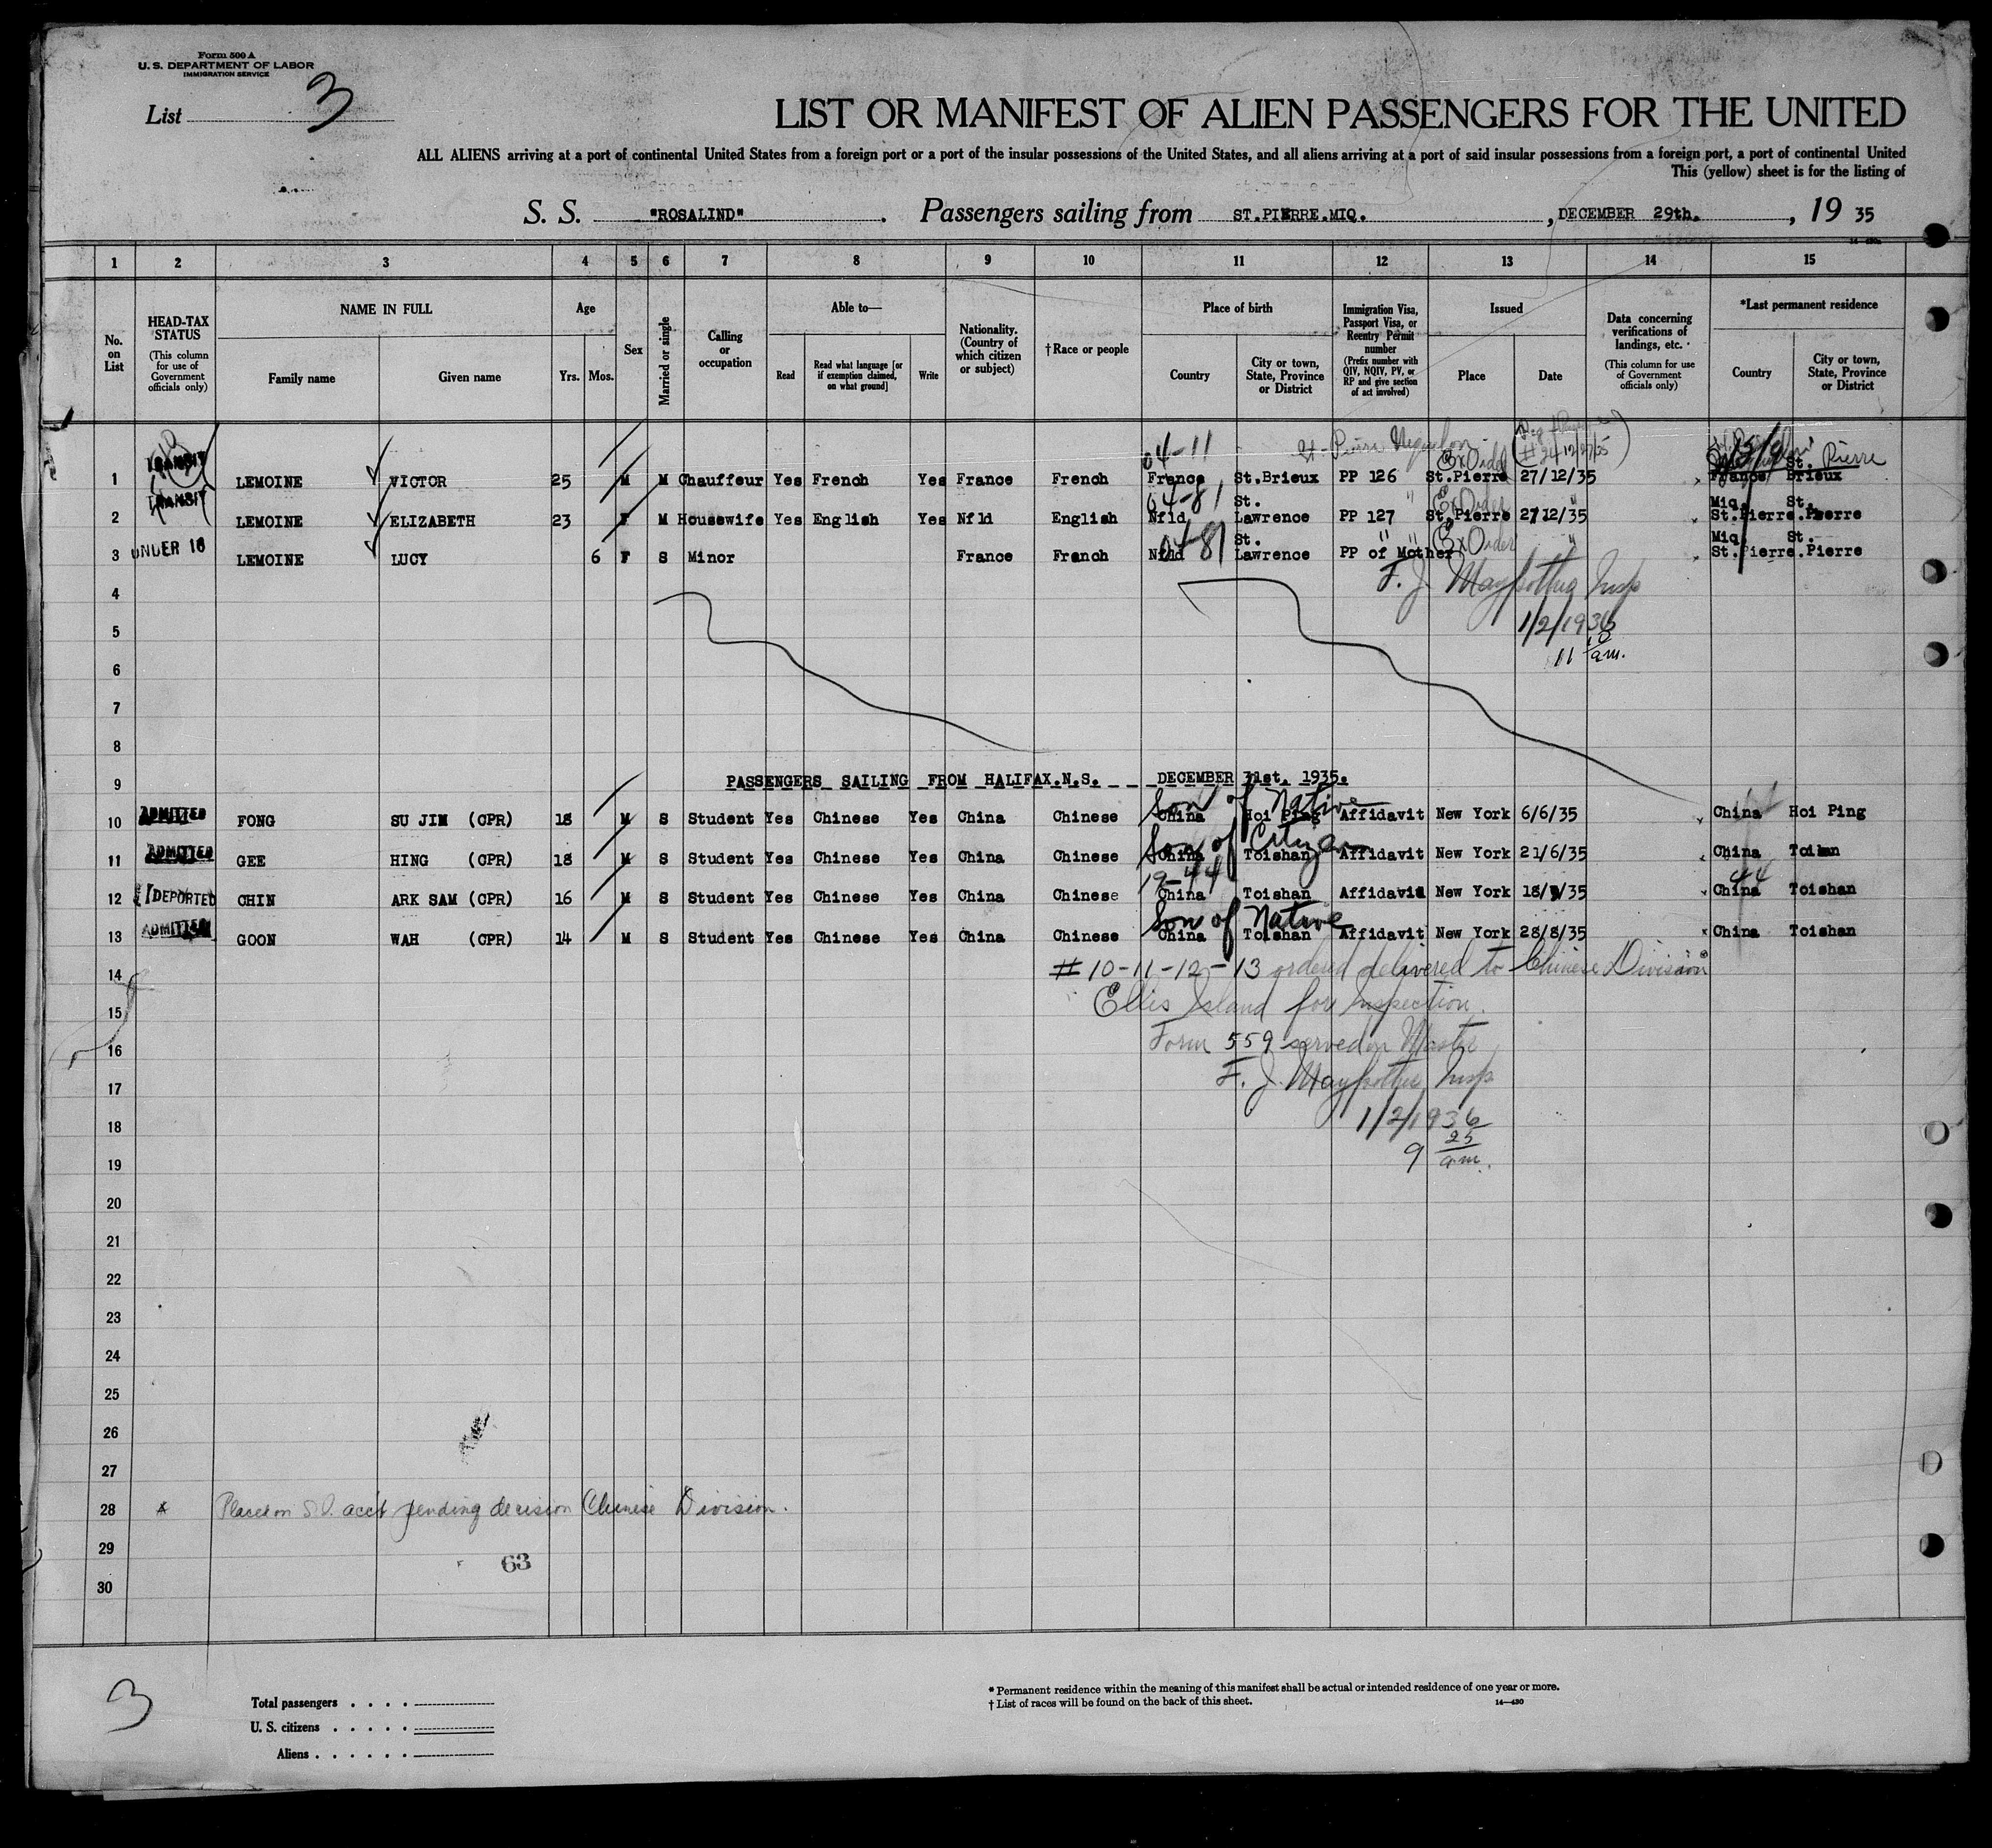 Form 500 A
U. S. DEPARTMENT OF LABOR
IMMIGRATION SERVICE
List 3
LIST OR MANIFEST OF ALIEN PASSENGERS FOR THE UNITED
ALL ALIENS arriving at a port of continental United States from a foreign port or a port of the insular possessions of the United States, and all aliens arriving at a port of said insular possessions from a foreign port, a port of continental United
This (yellow) sheet is for the listing of
S. S. "ROSALIND". Passengers sailing from ST.PIERRE.MIQ. , DECEMBER 29th. , 19 35
1 2 3 4 5 6 7 8 9 10 11 12 13 14 15
No. on List
HEAD-TAX STATUS (This column for use of Government officials only)
NAME IN FULL
Family name
Given name
Age
Yrs. Mos.
Sex
Married or single
Calling or occupation
Able to—
Read
Read what language [or if exemption claimed, on what ground]
Write
Nationality. (Country of which citizen or subject)
†Race or people
Place of birth
Country
City or town, State, Province or District
Immigration Visa, Passport Visa, or Reentry Permit number (Prefix number with QIV, NQIV, PV, or RP and give section of act involved)
Issued
Place
Date
Data concerning verifications of landings, etc. (This column for use of Government officials only)
*Last permanent residence
Country
City or town, State, Province or District
04-11 St-Pierre Miquelon
1 TRANSIT LEMOINE VICTOR 25 M M Chauffeur Yes French Yes France French France St.Brieux PP 126 St.Pierre 27/12/35 France Brieux St. Pierre
04-81 Ex Order
2 TRANSIT LEMOINE ELIZABETH 23 F M Housewife Yes English Yes Nfld English Nfld St. Lawrence PP 127 St.Pierre 27/12/35 Miq. St.Pierre. St. Pierre
04-81 Ex Order
3 UNDER 16 LEMOINE LUCY 6 F S Minor France French Nfld St. Lawrence PP of Mother " Miq. St.Pierre. St. Pierre
4 F. J. Insp
5 1/2/1936
6 11 10 am.
7
8
9 PASSENGERS SAILING FROM HALIFAX.N.S. _ _ _ DECEMBER 31st. 1935.
Son of Native
10 ADMITTED FONG SU JIM (CPR) 18 M S Student Yes Chinese Yes China Chinese China Hoi Ping Affidavit New York 6/6/35 China Hoi Ping
Son of Citizen
11 ADMITTED GEE HING (CPR) 18 M S Student Yes Chinese Yes China Chinese China Toishan Affidavit New York 21/6/35 China Toishan
19-44 44
12 DEPORTED CHIN ARK SAM (CPR) 16 M S Student Yes Chinese Yes China Chinese China Toishan Affidavit New York 18/ /35 China Toishan
Son of Native
13 ADMITTED GOON WAH (CPR) 14 M S Student Yes Chinese Yes China Chinese China Toishan Affidavit New York 28/8/35 China Toishan
14 # 10-11-12-13 ordered delivered to Chinese Division
15 Ellis Island for Inspection.
16 Form 559 served on Master
17 F. J. Insp
18 1/2/1936
19 9 25 am.
20
21
22
23
24
25
26
27
28 * Placed on S.I. acct pending decision Chinese Division.
29 63
30
3
Total passengers . . . .
U. S. citizens . . . . .
Aliens . . . . . .
* Permanent residence within the meaning of this manifest shall be actual or intended residence of one year or more.
† List of races will be found on the back of this sheet.
14—430